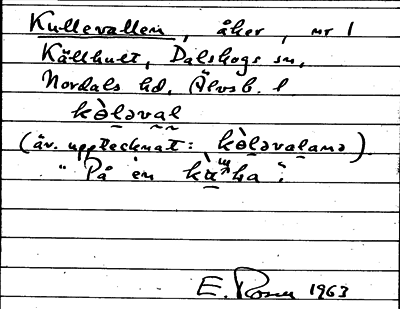 Kullevallen, åker, nr 1
Källhult, Dalskogs sn,
Nordals hd, Älvsb. l
kòləval
(äv. upptecknat: kòləvalənə)
"På en
E. Rosén 1963